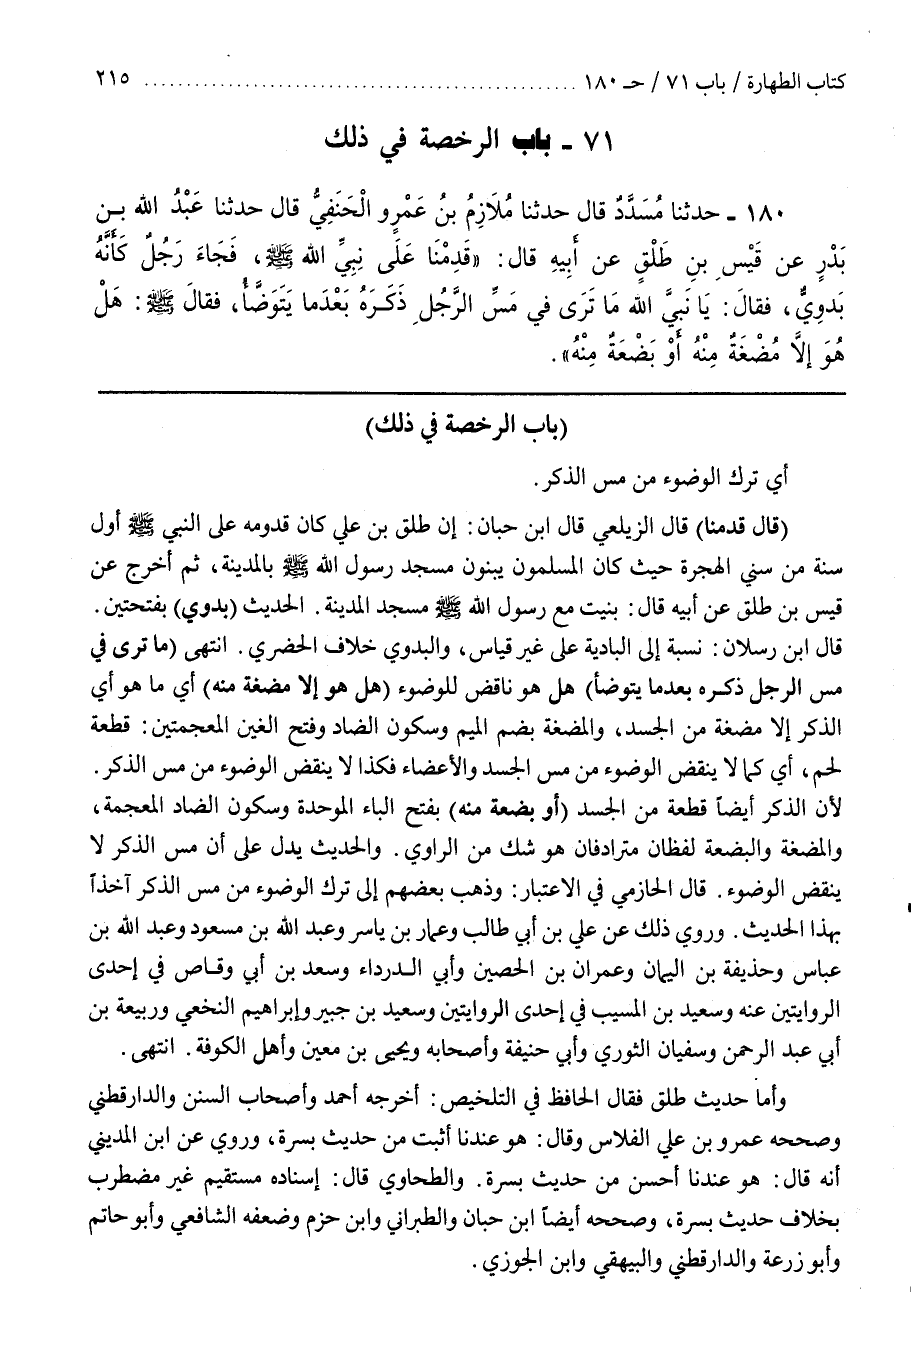 كتاب الطهارة / باب ٧١ / حـ ١٨٠ ................................................ ٢١٥
٧١ - باب الرخصة في ذلك
١٨٠ - حدثنا مُسَدَّدٌ قال حدثنا مُلَازِمُ بنُ عَمْرٍو الْحَنَفِيُّ قال حدثنا عَبْدُ الله بـن
بَدْرٍ عن قَيْسِ بنِ طَلْقٍ عن أَبِيهِ قال: «قَدِمْنَا عَلَى نَبِيِّ الله ﷺ، فَجَاءَ رَجُلٌ كَأَنَّهُ
بَدوِيٌّ، فقالَ: يَا نَبِيَّ الله مَا تَرَى في مَسِّ الرَّجُلِ ذَكَرَهُ بَعْدَما يَتَوَضَّأُ، فقالَ ﷺ: هَلْ
هُوَ إلَّا مُضْغَةٌ مِنْهُ أَوْ بَضْعَةٌ مِنْهُ».
(باب الرخصة في ذلك)
أي ترك الوضوء من مس الذكر.
(قال قدمنا) قال الزيلعي قال ابن حبان: إن طلق بن علي كان قدومه على النبي ﷺ أول
سنة من سني الهجرة حيث كان المسلمون يبنون مسجد رسول الله ﷺ بالمدينة، ثم أخرج عن
قيس بن طلق عن أبيه قال: بنيت مع رسول الله ﷺ مسجد المدينة. الحديث (بدوي) بفتحتين.
قال ابن رسلان: نسبة إلى البادية على غير قياس، والبدوي خلاف الحضري. انتهى (ما ترى في
مس الرجل ذكره بعدما يتوضأ) هل هو ناقض للوضوء (هل هو إلا مضغة منه) أي ما هو أي
الذكر إلا مضغة من الجسد، والمضغة بضم الميم وسكون الضاد وفتح الغين المعجمتين: قطعة
لحم، أي كما لا ينقض الوضوء من مس الجسد والأعضاء فكذا لا ينقض الوضوء من مس الذكر.
لأن الذكر أيضاً قطعة من الجسد (أو بضعة منه) بفتح الباء الموحدة وسكون الضاد المعجمة،
والمضغة والبضعة لفظان مترادفان هو شك من الراوي. والحديث يدل على أن مس الذكر لا
ينقض الوضوء. قال الحازمي في الاعتبار: وذهب بعضهم إلى ترك الوضوء من مس الذكر آخذاً
بهذا الحديث. وروي ذلك عن علي بن أبي طالب وعمار بن ياسر وعبد الله بن مسعود وعبد الله بن
عباس وحذيفة بن اليمان وعمران بن الحصين وأبي الـدرداء وسعد بن أبي وقـاص في إحدى
الروايتين عنه وسعيد بن المسيب في إحدى الروايتين وسعيد بن جبير وإبراهيم النخعي وربيعة بن
أبي عبد الرحمن وسفيان الثوري وأبي حنيفة وأصحابه ويحيى بن معين وأهل الكوفة. انتهى.
وأما حديث طلق فقال الحافظ في التلخيص: أخرجه أحمد وأصحاب السنن والدارقطني
وصححه عمرو بن علي الفلاس وقال: هو عندنا أثبت من حديث بسرة، وروي عن ابن المديني
أنه قال: هو عندنا أحسن من حديث بسرة. والطحاوي قال: إسناده مستقيم غير مضطرب
بخلاف حديث بسرة، وصححه أيضاً ابن حبان والطبراني وابن حزم وضعفه الشافعي وأبو حاتم
وأبو زرعة والدارقطني والبيهقي وابن الجوزي.